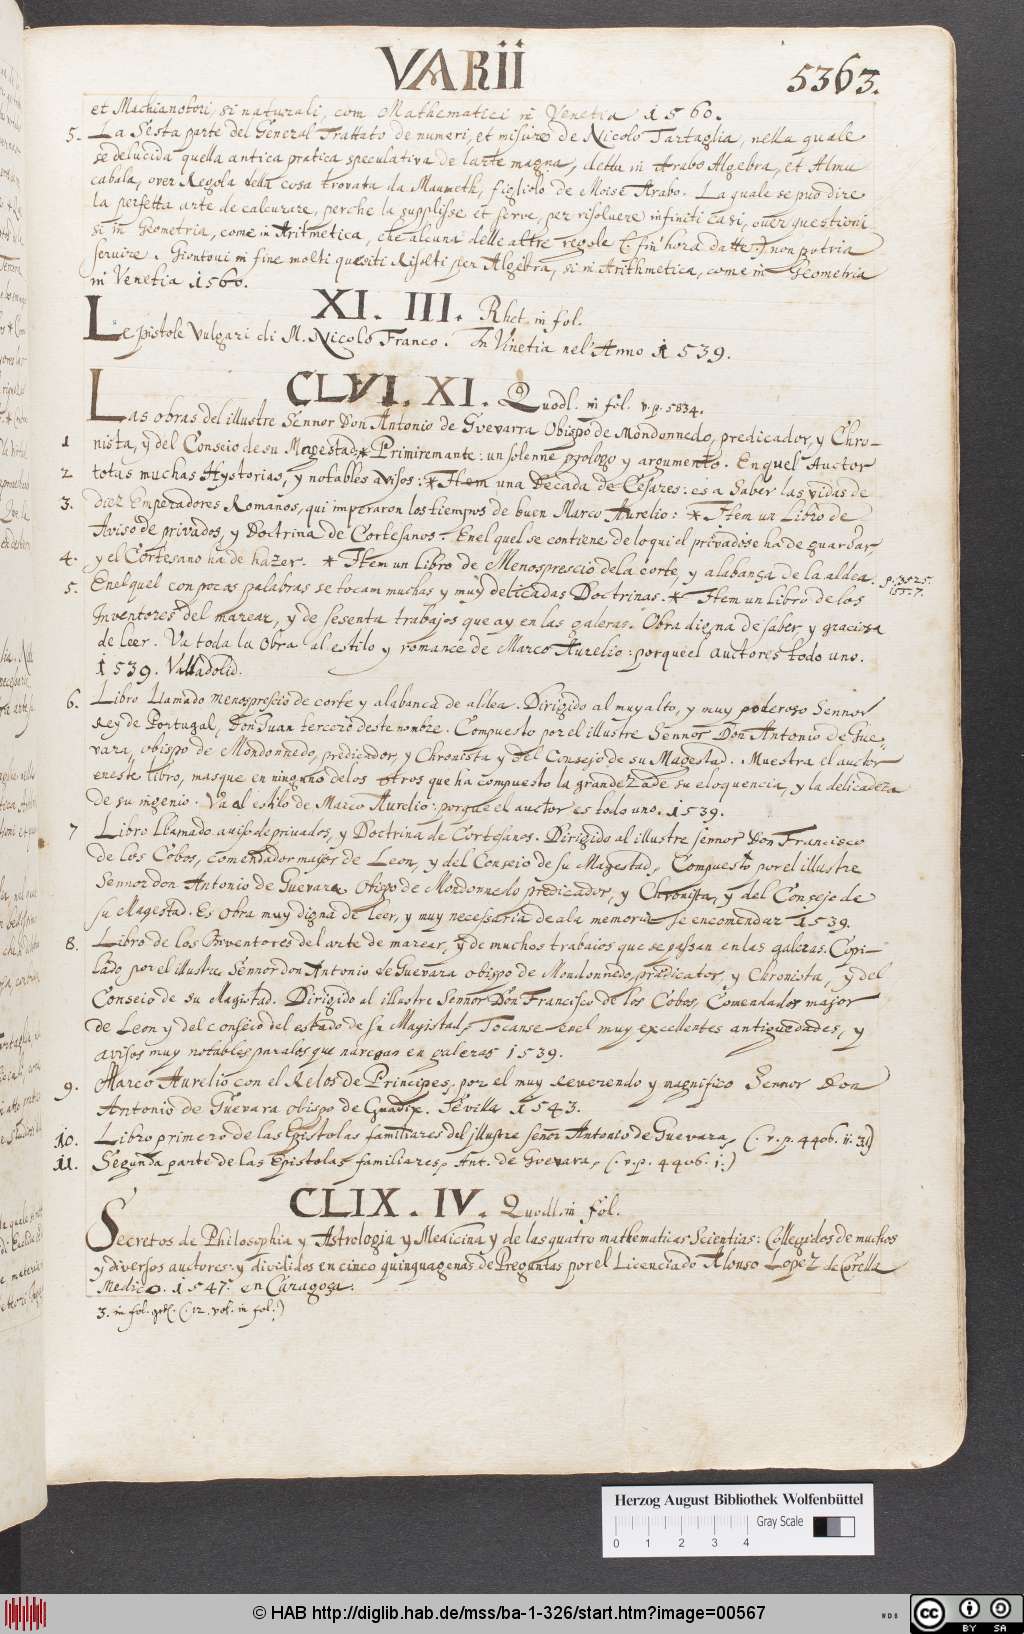 VARII
5363.
et Machianotori, si naturali, com Mathematici in Venetia 1560.
5. La Sesta parte del General Trattato de numeri, et misure de Nicolo Tartaglia, nella quale
se delucida quella antica pratica speculativa de l'arte magna, detta in Arabo Algebra, et Almu
cabala, over Regola della cosa trovata da Maumeth, figliolo de Moise Arabo. La quale se puo dire
la perfetta arte de calcurare, perche la supplisse et serve, per risolvere infiniti casi, over questioni
si in Geometria, come in Aritmetica, che alcuna delle altre regole (: fin'hora datte :) non potria
servire. Giontovi in fine molti quesiti Risolti per Algebra, si in Arithmetica, come in Geometria
in Venetia 1560.
XI. III. Rhet. in fol.
Le pistole Vulgari di M. Nicolo Franco. In Vinetia nel'Anno 1539.
CLVI. XI. Quodl. in fol. v.p. 5834.
Las obras del illustre Sennor Don Antonio de Guevarra Obispo de Mondonnedo, predicador, y Chro-
1 nista, y del Conseio de su Magestad * Primiremante: un solenne prologo y argumento. En quel Auctor
2 totus muchas Hystorias, y notables avisos: * Item una Decada de Cesares: es a Saber las vidas de
3. diez Emperadores Romanos, qui imperaron los tiempos de buen Marco Aurelio: * Item un Libro de
Aviso de privados, y Doctrina de Cortesanos. En el quel se contiene de lo qui el privadose ha de guardar,
4. y el Cortesano ha de hazer. * Item un libro de Menosprescio dela corte, y alabança de la aldea. p. 3525.
5. En el quel con pocas palabras se tocam muchas y muy delicadas Doctrinas. * Item un libro de los 155.7.
Inventores del marear, y de sesenta trabajos que ay en las galeras. Obra digna de saber, y graciosa
de leer. Va toda la Obra al estilo y romance de Marco Aurelio: porque el auctor es todo uno.
1539. Valladolid.
6. Libro Llamado menosprescio de corte y alabanca de aldea. Dirigido al muy alto, y muy poderoso Sennor
Rey de Portugal, Don Juan tercero deste nombre. Compuesto por el illustre Sennor Don Antonio de Gue-
vara, obispo de Mondonnedo, predicador, y Chronista y del Consejo de su Magestad. Muestra el auctor
en este libro, mas que en ninguno delos otros que ha compuesto la grandeza de su eloquencia, y la delicadeza
de su ingenio: Va al estilo de Marco Aurelio: porque el auctor es todo uno. 1539.
7 Libro Llamado aviso de privados, y Doctrina de Cortesanos. Dirigido al illustre sennor Don Francisco
de los Cobos, comendador major de Leon, y del Conseio de su Magestad, Compuesto por el illustre
Sennor don Antonio de Guevara Obispo de Mondonnedo predicador, y Chronista, y del Consejo de
su Magestad. Es obra muy digna de leer, y muy necessaria de ala memoria se encomendar 1539.
8. Libro de los Inventores del arte de marear, y de muchos trabaios que se passan en las galeras. Copi-
lado por el illustre Sennor don Antonio de Guevara obispo de Mondonnedo, predicator, y Chronista, y del
Conseio de su Magistad. Dirigido al illustre Sennor Don Francisco de los Cobos, Comendador major
de Leon y del conseio del estado de su Magistad, Tocanse enel muy excellentes antiguedades, y
avisos muy notables para los que navegan en galeras 1539.
9. Marco Aurelio con el Relos de Principes, por el muy Reverendo y magnifico Sennor Don
Antonio de Guevara obispo de Guadix. Sevilla 1543.
10. Libro primero de las Epistolas familiares del illustre señor Antonio de Guevara, (. v. p. 4406. ii. 31)
11. Segunda parte de las Epistolas familiares, Ant. de Guevara, (. v. p. 4406. i.)
CLIX. IV. Quodl. in fol.
Secretos de Philosophia y Astrologia y Medicina y de las quatro mathematicas Scientias: Collegidos de muchos
y diversos auctores: y divididos en cinco quinquagenas de Preguntas por el Licenciado Alonso Lopez de Corella
Medico. 1547. en Caragoça.
3. in fol. (. 12. vol. in fol.)
Herzog August Bibliothek Wolfenbüttel
Gray Scale
0 1 2 3 4
© HAB http://diglib.hab.de/mss/ba-1-326/start.htm?image=00567
cc BY SA